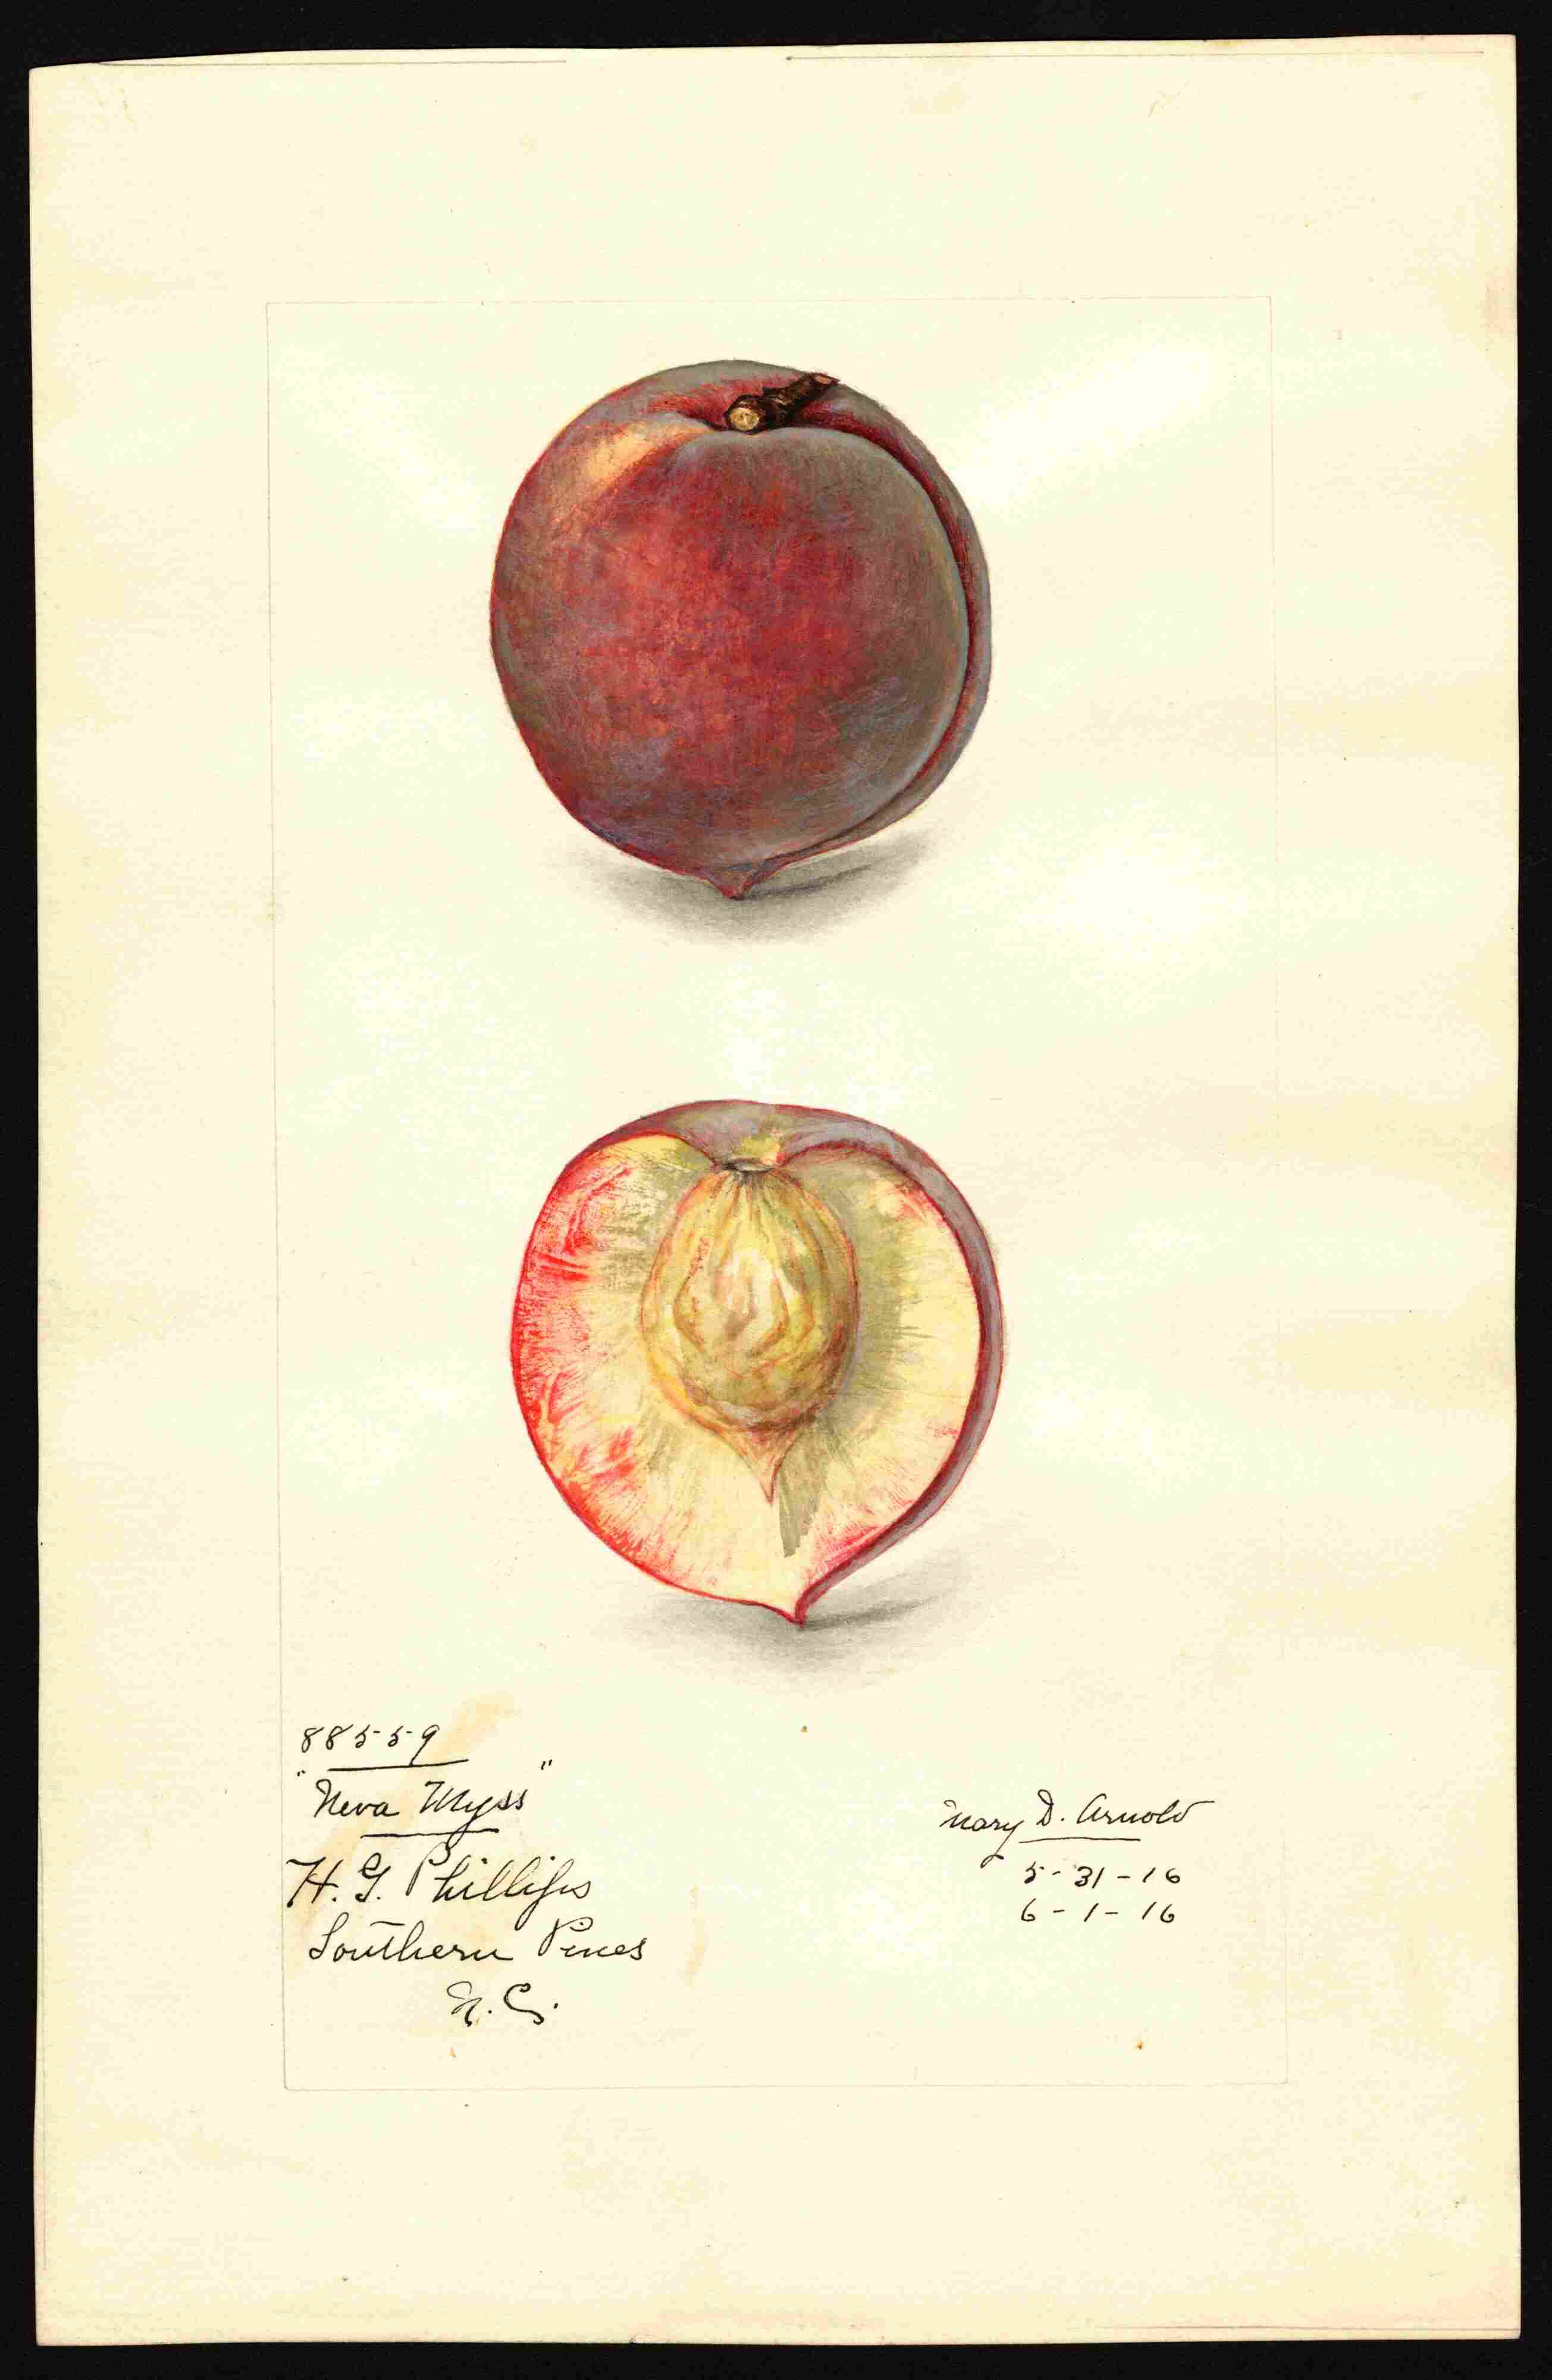 88559
"Neva Myss"
H. G. Phillips
Southern Pines
N. C.
Mary D. Arnold
5-31-16
6-1-16